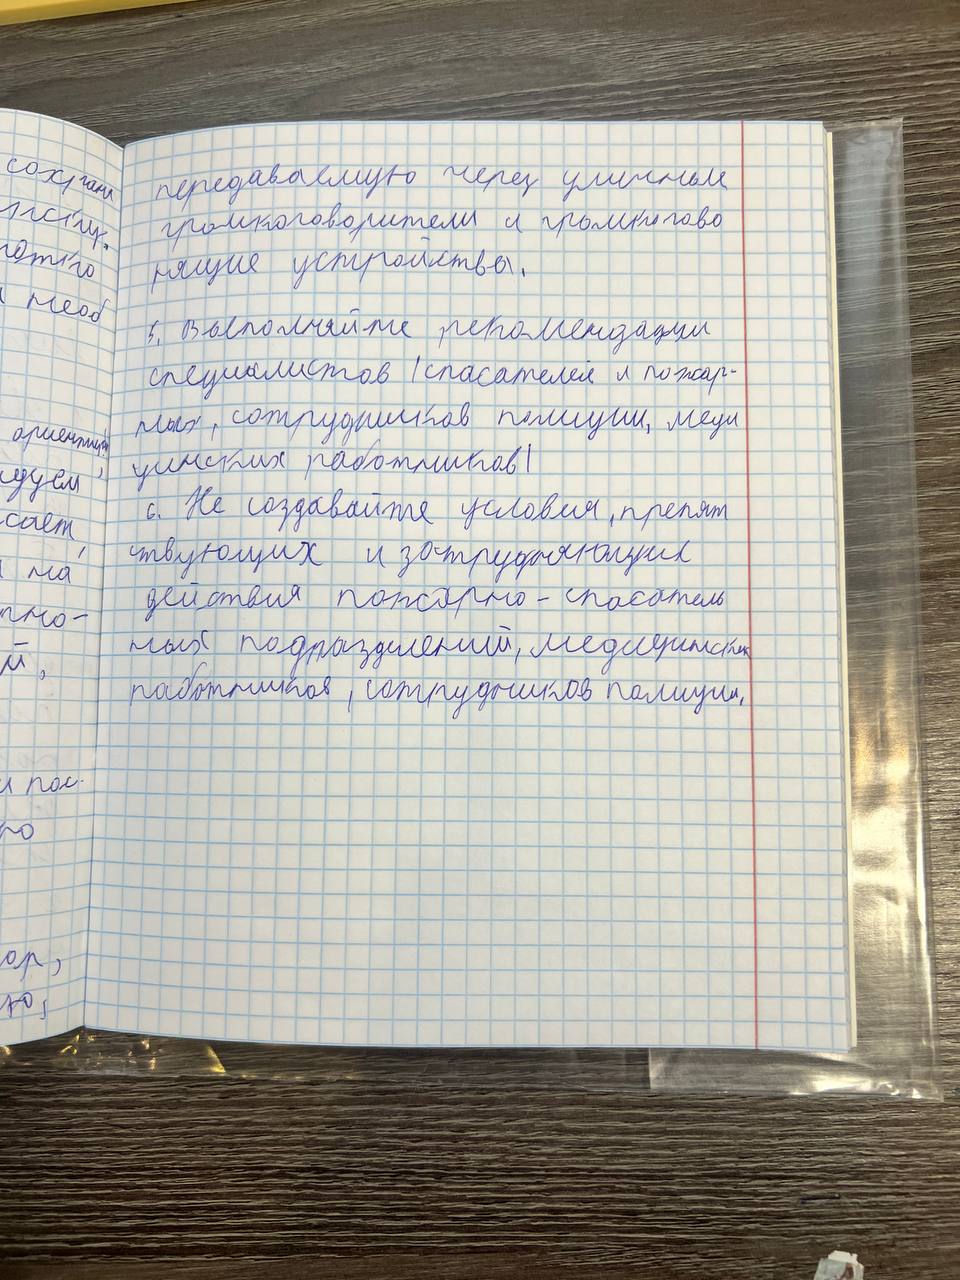 сохрани
ориентируй
дуем
сает,
и на
чно-
й,
и пос-
ро
ор,
ю,
передаваемую через уличные
громкоговорители и громкогово
рящие устройства.
5. Выполняйте рекомендации
специалистов (спасателей и пожар-
ных, сотрудников полиции, меди
цинских работников)
6. Не создавайте условия, препят
ствующих и затрудняющих
действия пожарно-спасатель
ных подразделений, медицинских
работников, сотрудников полиции.